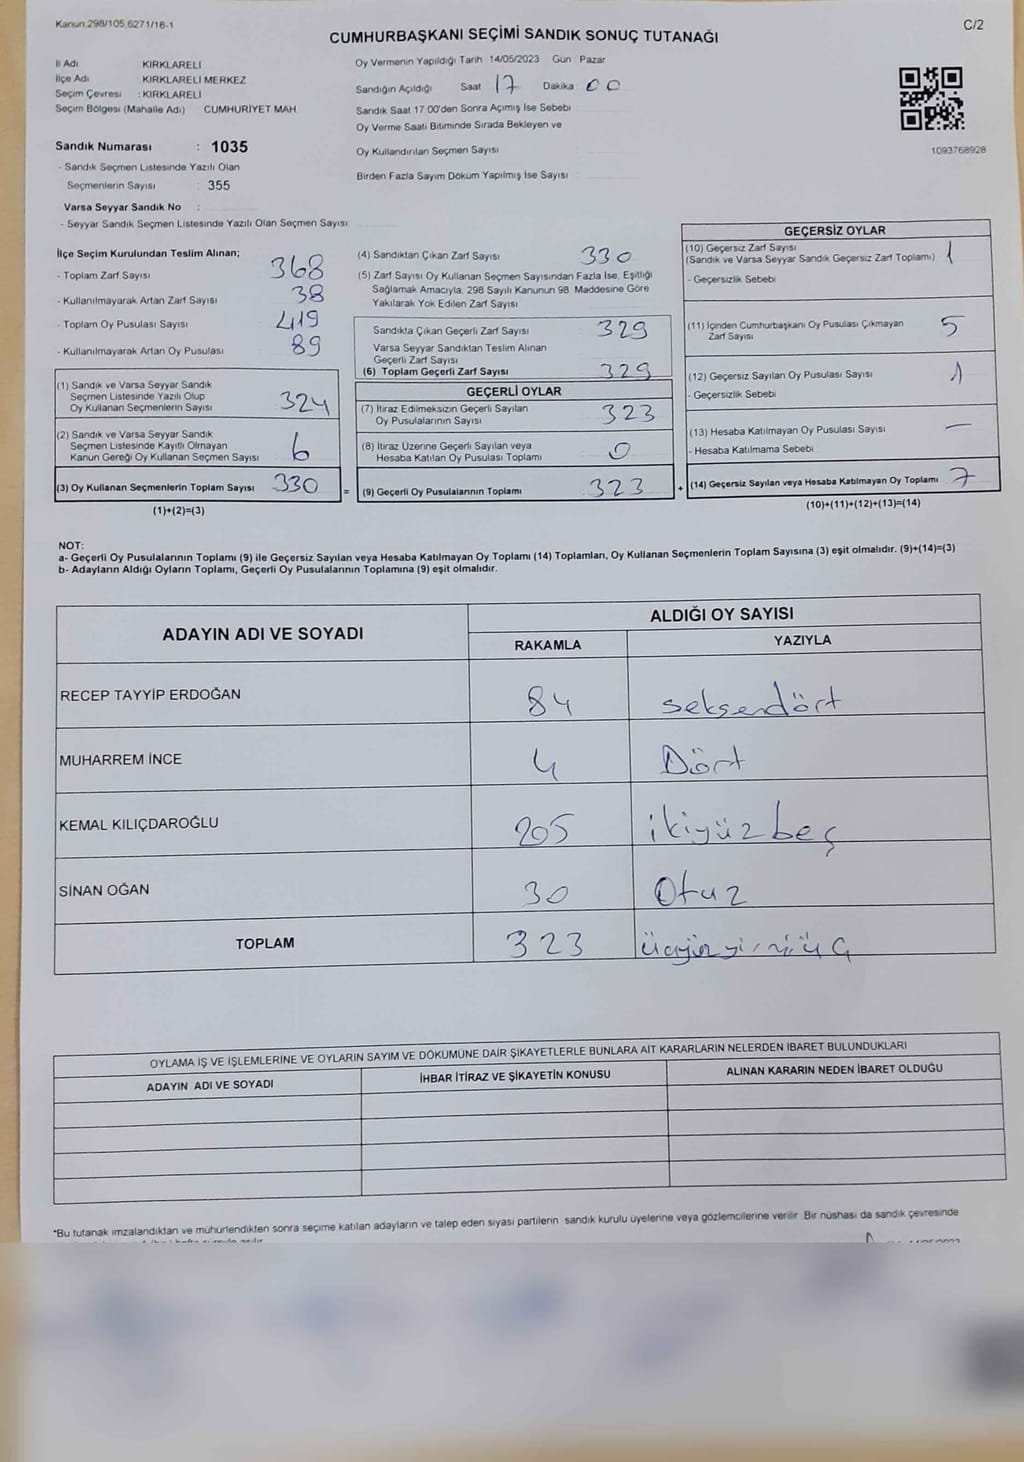 Kanun 298/105,6271/18-1
C/2
CUMHURBAŞKANI SEÇİMİ SANDIK SONUÇ TUTANAĞI
İl Adı KIRKLARELİ
İlçe Adı KIRKLARELİ MERKEZ
Seçim Çevresi : KIRKLARELİ
Seçim Bölgesi (Mahalle Adı) CUMHURİYET MAH.
Oy Vermenin Yapıldığı Tarih 14/05/2023 Gün Pazar
Sandığın Açıldığı Saat 17 Dakika 00
Sandık Saat 17.00'den Sonra Açımış İse Sebebi
Oy Verme Saati Bitiminde Sırada Bekleyen ve
Oy Kullandırılan Seçmen Sayısı
Birden Fazla Sayım Döküm Yapılmış İse Sayısı
1093768928
Sandık Numarası : 1035
- Sandık Seçmen Listesinde Yazılı Olan
Seçmenlerin Sayısı : 355
Varsa Seyyar Sandık No :
- Seyyar Sandık Seçmen Listesinde Yazılı Olan Seçmen Sayısı
İlçe Seçim Kurulundan Teslim Alınan;
- Toplam Zarf Sayısı 368
- Kullanılmayarak Artan Zarf Sayısı 38
- Toplam Oy Pusulası Sayısı 419
- Kullanılmayarak Artan Oy Pusulası 89
(1) Sandık ve Varsa Seyyar Sandık
Seçmen Listesinde Yazılı Olup
Oy Kullanan Seçmenlerin Sayısı 324
(2) Sandık ve Varsa Seyyar Sandık
Seçmen Listesinde Kayıtlı Olmayan
Kanun Gereği Oy Kullanan Seçmen Sayısı 6
(3) Oy Kullanan Seçmenlerin Toplam Sayısı 330
(1)+(2)=(3)
(4) Sandıktan Çıkan Zarf Sayısı 330
(5) Zarf Sayısı Oy Kullanan Seçmen Sayısından Fazla İse, Eşitliği
Sağlamak Amacıyla; 298 Sayılı Kanunun 98. Maddesine Göre
Yakılarak Yok Edilen Zarf Sayısı
Sandıkta Çıkan Geçerli Zarf Sayısı 329
Varsa Seyyar Sandıktan Teslim Alınan
Geçerli Zarf Sayısı
(6) Toplam Geçerli Zarf Sayısı 329
GEÇERLİ OYLAR
(7) İtiraz Edilmeksizin Geçerli Sayılan
Oy Pusulalarının Sayısı 323
(8) İtiraz Üzerine Geçerli Sayılan veya
Hesaba Katılan Oy Pusulası Toplamı 0
= (9) Geçerli Oy Pusulalarının Toplamı 323
GEÇERSİZ OYLAR
(10) Geçersiz Zarf Sayısı
(Sandık ve Varsa Seyyar Sandık Geçersiz Zarf Toplamı) 1
- Geçersizlik Sebebi
(11) İçinden Cumhurbaşkanı Oy Pusulası Çıkmayan
Zarf Sayısı 5
(12) Geçersiz Sayılan Oy Pusulası Sayısı 1
- Geçersizlik Sebebi
(13) Hesaba Katılmayan Oy Pusulası Sayısı —
- Hesaba Katılmama Sebebi
+ (14) Geçersiz Sayılan veya Hesaba Katılmayan Oy Toplamı 7
(10)+(11)+(12)+(13)=(14)
NOT:
a- Geçerli Oy Pusulalarının Toplamı (9) ile Geçersiz Sayılan veya Hesaba Katılmayan Oy Toplamı (14) Toplamları, Oy Kullanan Seçmenlerin Toplam Sayısına (3) eşit olmalıdır. (9)+(14)=(3)
b- Adayların Aldığı Oyların Toplamı, Geçerli Oy Pusulalarının Toplamına (9) eşit olmalıdır.
ADAYIN ADI VE SOYADI
ALDIĞI OY SAYISI
RAKAMLA YAZIYLA
RECEP TAYYİP ERDOĞAN 84 seksendört
MUHARREM İNCE 4 Dört
KEMAL KILIÇDAROĞLU 205 ikiyüzbeş
SİNAN OĞAN 30 Otuz
TOPLAM 323 üçyüzyirmiüç
OYLAMA İŞ VE İŞLEMLERİNE VE OYLARIN SAYIM VE DÖKÜMÜNE DAİR ŞİKAYETLERLE BUNLARA AİT KARARLARIN NELERDEN İBARET BULUNDUKLARI
ADAYIN ADI VE SOYADI İHBAR İTİRAZ VE ŞİKAYETİN KONUSU ALINAN KARARIN NEDEN İBARET OLDUĞU
*Bu tutanak imzalandıktan ve mühürlendikten sonra seçime katılan adayların ve talep eden siyasi partilerin sandık kurulu üyelerine veya gözlemcilerine verilir. Bir nüshası da sandık çevresinde